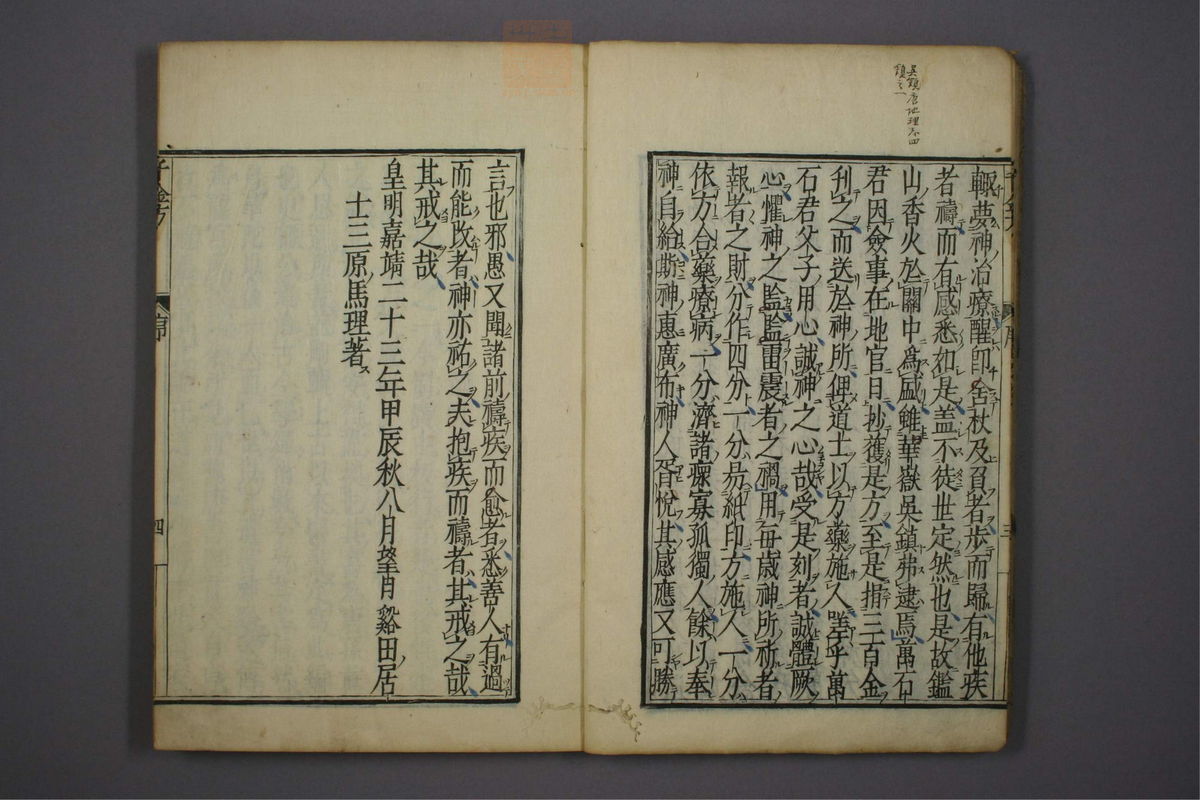 吳鎮唐地理志四
鎮之一
輒夢神治療醒即舍杖及肩者步而歸有他疾
者禱而有感悉如是盖不徒世定然也是故鑑
山香火於關中爲盛雖華嶽吳鎮弗逮焉萬石
君因僉事在地官日抄獲是方至是捐三百金
刊之而送於神所俾道士以方藥施人嗟乎萬
石君父子用心誠神之心哉受是刻者誠體厥
心懼神之監監雷震者之禍用每歲神所祈者
報者之財分作四分一分易紙印方施人一分
依方合藥療病一分濟諸瘝寡孤獨人餘以奉
神自給斯神惠廣布神人胥悅其感應又可勝
序
三
言也邪愚又聞諸前禱疾而愈者悉善人有過
而能改者神亦祐之夫抱疾而禱者其戒之哉
其戒之哉
皇明嘉靖二十三年甲辰秋八月望月谿田居
士三原馬理著
千金方
序
四